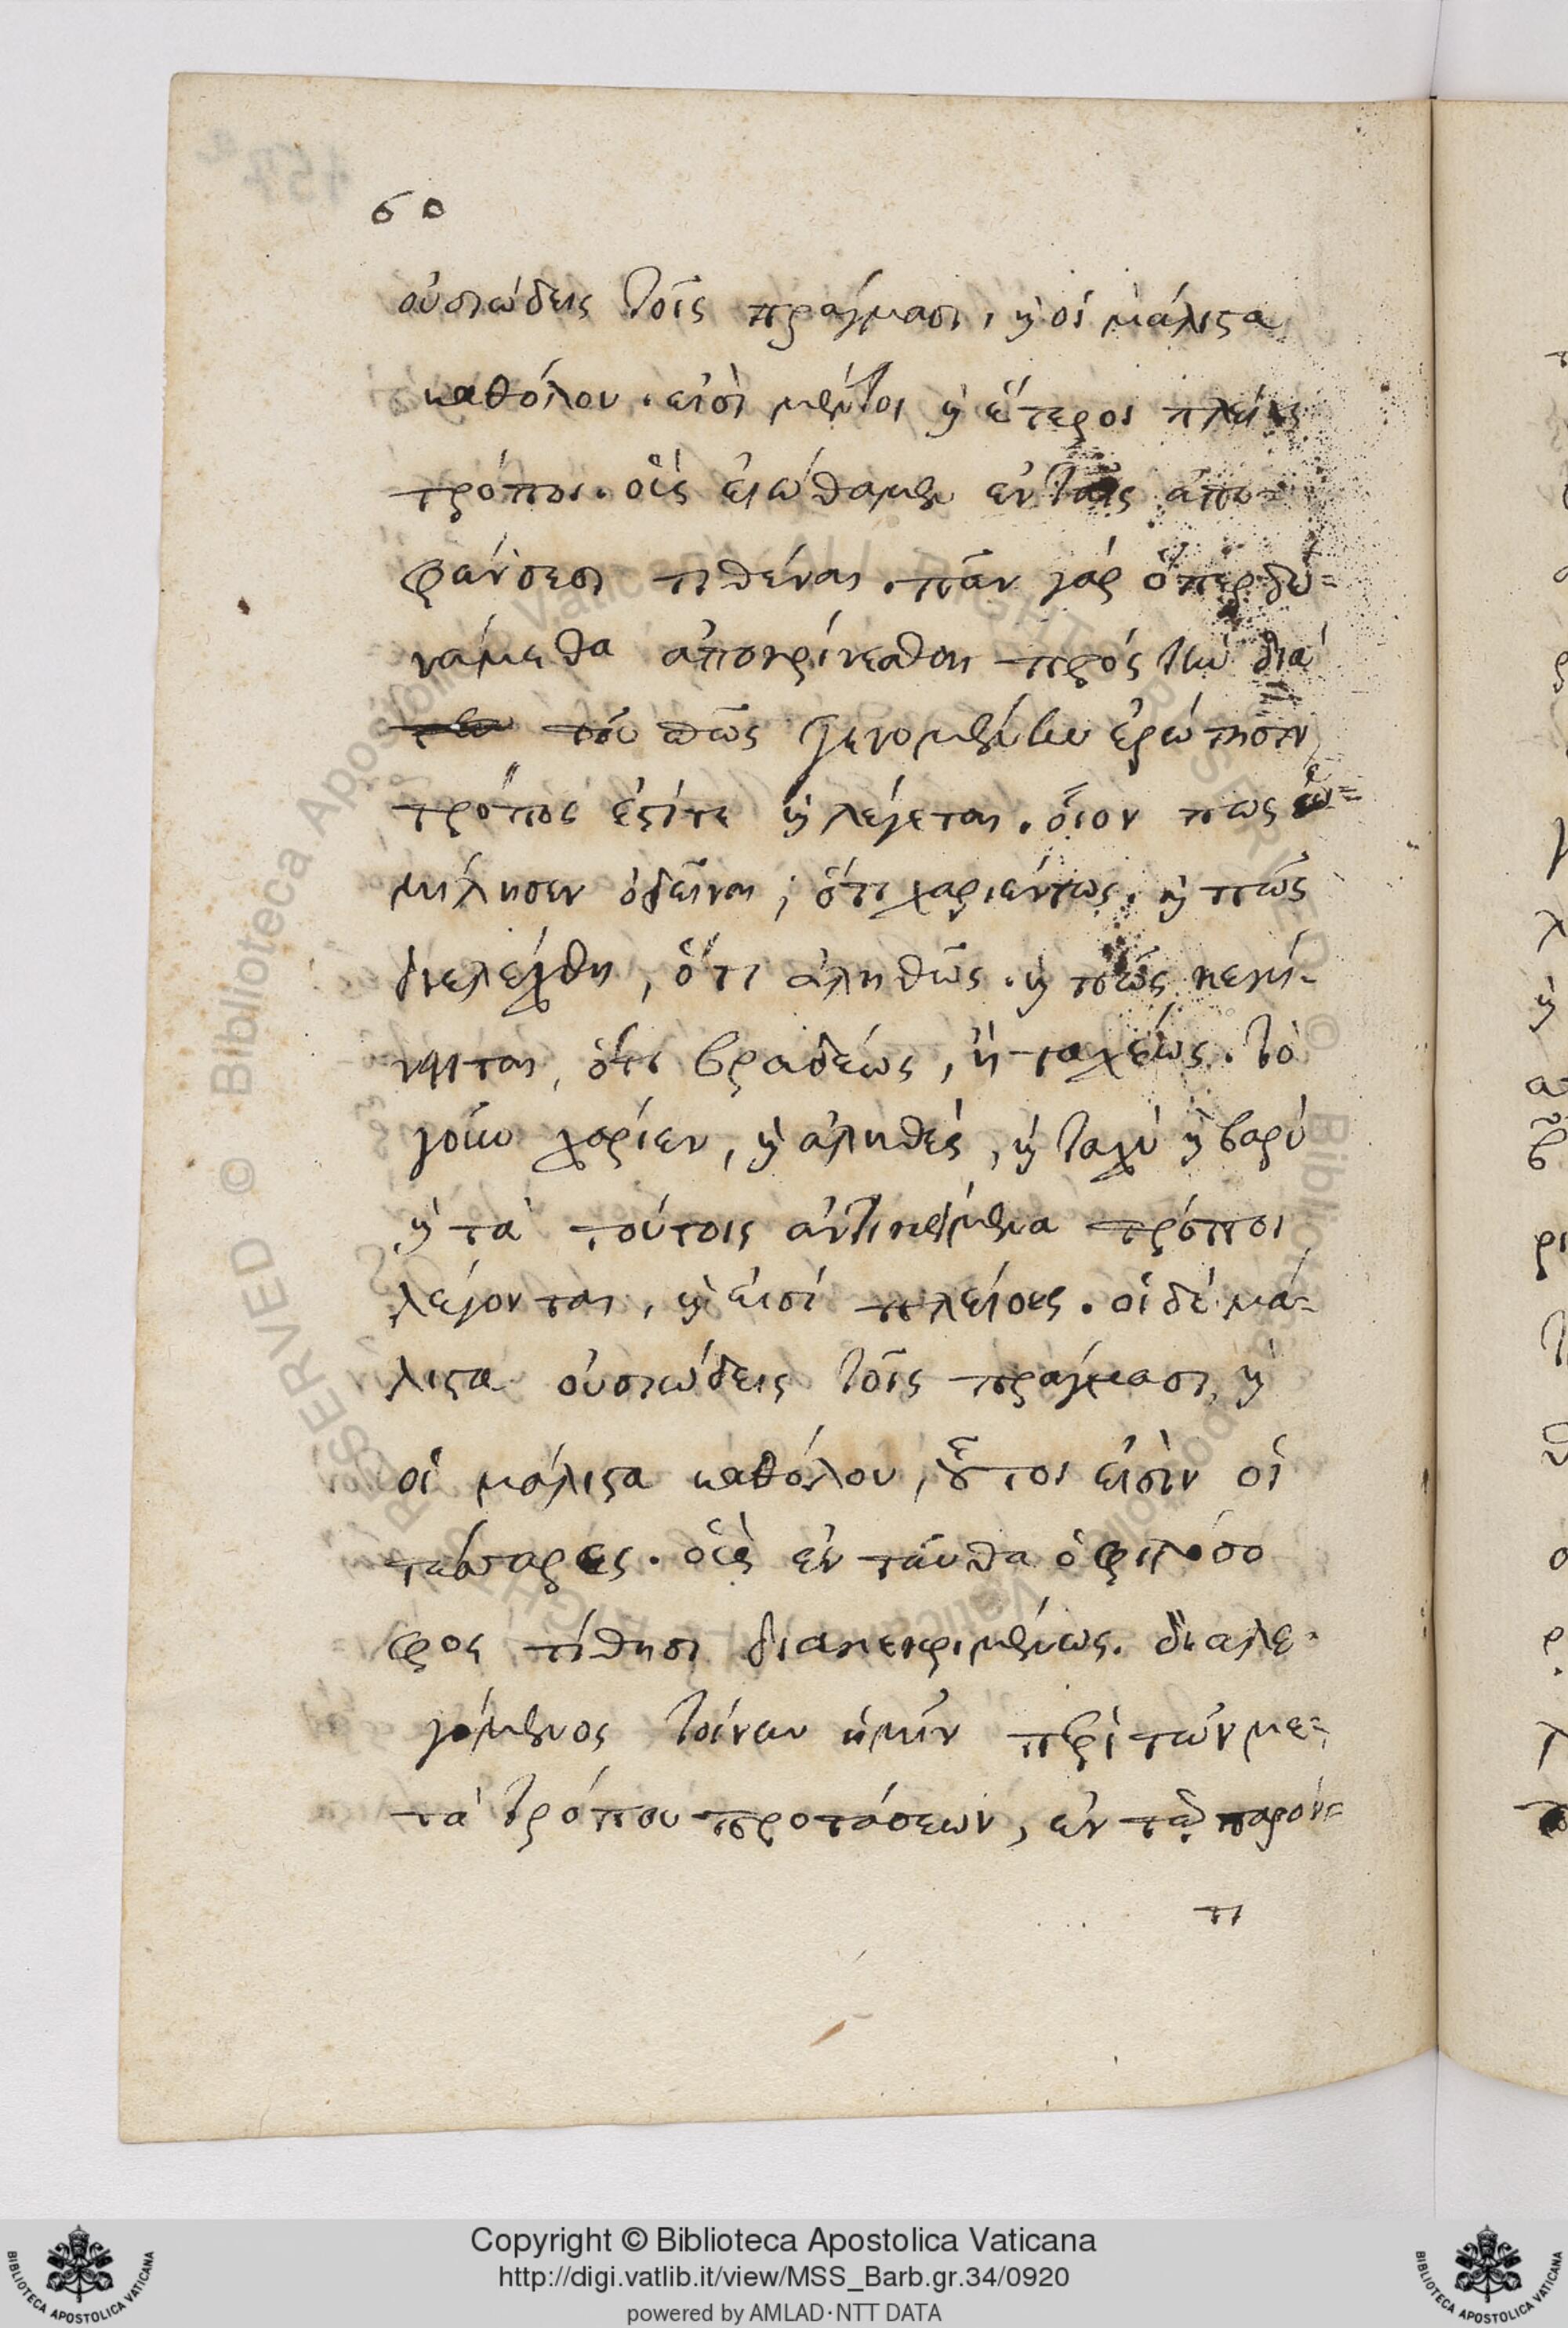 60
οὐσιώδεις τοῖς πράγμασι, ϗ οἱ μάλιϛα
καθόλου. εἰσὶ μέντοι ϗ ἕτεροι πλείους
τρόποι. οἷς εἰώθαμεν ἐν ταῖς ἀπο-
φάνσεσι τιθέναι. πᾶν γάρ ὅπερ δυ=
νάμεθα ἀποκρίνεσθαι πρός τὴν διά
τοῦ πῶς γενομένην ἐρώτησιν
τρόπος ἐϛί τε ϗ λέγεται. οἷον πως ὡ=
μίλησεν ὁ δεῖνα; ὅτι χαριέντως. ϗ πῶς
διελέχθη, ὅτι ἀληθῶς. ϗ πῶς κεκί-
νηται, ὅτι βραδέως, ἢ ταχέως. τὸ
γοῦν χαρίεν, ϗ ἀληθές, ϗ ταχύ ϗ βαρύ
ϗ τὰ τούτοις ἀντικείμενα τρόποι
λέγονται, ϗ εἰσί πλείους. οἱ δὲ μά-
λιϛα οὐσιώδεις τοῖς πράγμασι, ϗ
οἱ μάλιϛα καθόλου, ȣ̃τοι εἰσὶν οἱ
τέσσαρες. οἷς ἐνταῦθα ὁ φιλόσο
φος τίθησι διακεκριμένως. διαλε-
γόμενος τοίνυν ἡμῖν περὶ τῶν με-
τὰ τρόπου προτάσεων, ἐν τῷ παρόν=
τι
Copyright © Biblioteca Apostolica Vaticana
http://digi.vatlib.it/view/MSS_Barb.gr.34/0920
powered by AMLAD·NTT DATA